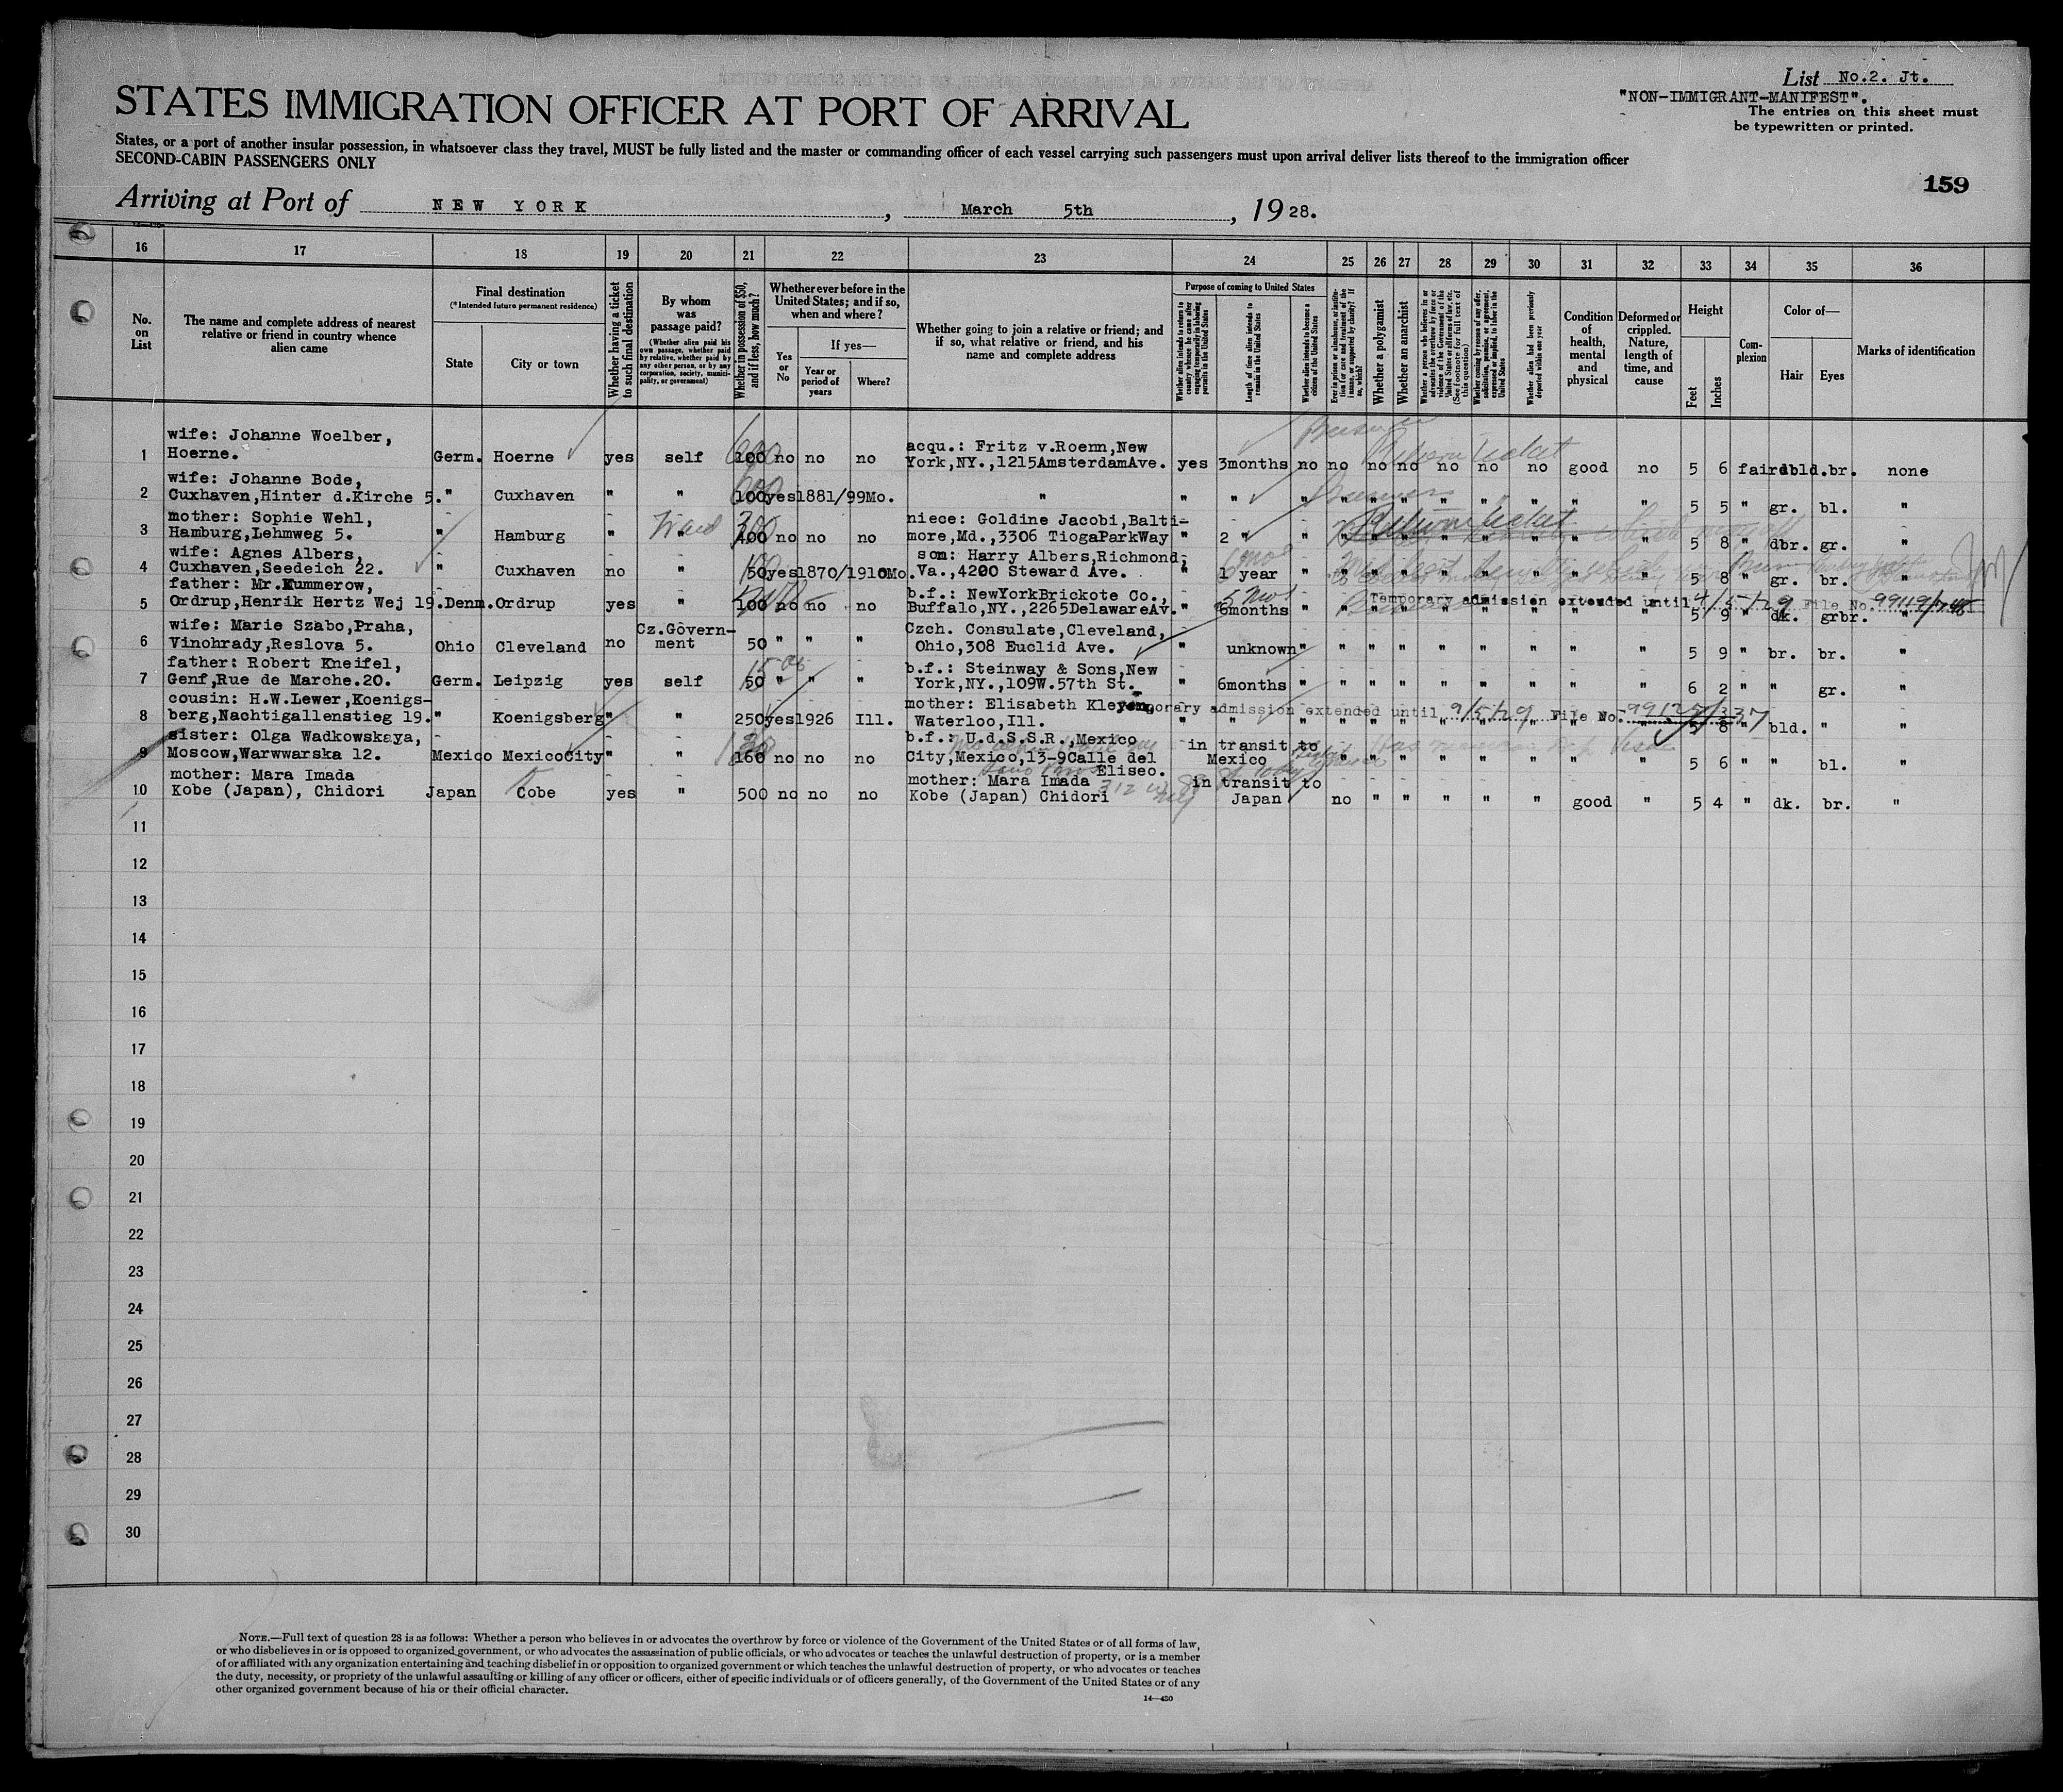 List No.2. Jt.
"NON-IMMIGRANT-MANIFEST".
The entries on this sheet must
be typewritten or printed.
STATES IMMIGRATION OFFICER AT PORT OF ARRIVAL
States, or a port of another insular possession, in whatsoever class they travel, MUST be fully listed and the master or commanding officer of each vessel carrying such passengers must upon arrival deliver lists thereof to the immigration officer
SECOND-CABIN PASSENGERS ONLY
159
Arriving at Port of NEW YORK, March 5th, 1928.
16 17 18 19 20 21 22 23 24 25 26 27 28 29 30 31 32 33 34 35 36
No. on List
The name and complete address of nearest relative or friend in country whence alien came
Final destination
(*Intended future permanent residence)
State
City or town
Whether having a ticket to such final destination
By whom was passage paid?
(Whether alien paid his own passage, whether paid by relative, whether paid by any other person, or by any corporation, society, municipality, or government)
Whether in possession of $50, and if less, how much?
Whether ever before in the United States; and if so, when and where?
Yes or No
If yes—
Year or period of years
Where?
Whether going to join a relative or friend; and if so, what relative or friend, and his name and complete address
Purpose of coming to United States
Whether alien intends to return to country whence he came after engaging temporarily in laboring pursuits in the United States
Length of time alien intends to remain in the United States
Whether alien intends to become a citizen of the United States
Ever in prison or almshouse, or institution for care and treatment of the insane, or supported by charity? If so, which?
Whether a polygamist
Whether an anarchist
Whether a person who believes in or advocates the overthrow by force or violence of the Government of the United States or all forms of law, etc. (See footnote for full text of this question)
Whether coming by reason of any offer, solicitation, promise, or agreement, expressed or implied, to labor in the United States
Whether alien had been previously deported within one year
Condition of health, mental and physical
Deformed or crippled. Nature, length of time, and cause
Height
Feet
Inches
Complexion
Color of—
Hair
Eyes
Marks of identification
Business
Return ticket
1 wife: Johanne Woelber, Hoerne. Germ. Hoerne yes self 100 no no no acqu.: Fritz v.Roenn,New York,NY.,1215AmsterdamAve. yes 3months no no no no no no no good no 5 6 fair dbld. br. none
2 wife: Johanne Bode, Cuxhaven,Hinter d.Kirche 5. " Cuxhaven " " 100 yes 1881/99 Mo. " " " " " " " " " " " " 5 5 " gr. bl. "
Business
Return ticket
3 mother: Sophie Wehl, Hamburg,Lehmweg 5. " Hamburg " " 400 no no no niece: Goldine Jacobi,Baltimore,Md.,3306 TiogaParkWay " 2 " " " " " " " " " " 5 8 " dbr. gr. "
4 wife: Agnes Albers, Cuxhaven,Seedeich 22. " Cuxhaven no " 50 yes 1870/1910 Mo. son: Harry Albers,Richmond, Va.,4200 Steward Ave. " 1 year " " " " " " " " " 5 8 " gr. br. "
5 Mos
5 father: Mr.Kummerow, Ordrup,Henrik Hertz Wej 19. Denm. Ordrup yes " 100 no no no b.f.: NewYorkBrickote Co., Buffalo,NY.,2265DelawareAv. " 6months " " " " " " " " " 5 9 " dk. grbr. "
Temporary admission extended until 4/5/29 File No. 99119/748
6 wife: Marie Szabo,Praha, Vinohrady,Reslova 5. Ohio Cleveland no Cz.Government 50 " " " Czch. Consulate,Cleveland, Ohio,308 Euclid Ave. " unknown " " " " " " " " " 5 9 " br. br. "
7 father: Robert Kneifel, Genf,Rue de Marche.20. Germ. Leipzig yes self 50 " " " b.f.: Steinway & Sons,New York,NY.,109W.57th St. " 6months " " " " " " " " " 6 2 " " gr. "
8 cousin: H.W.Lewer,Koenigsberg,Nachtigallenstieg 19. " Koenigsberg " " 250 yes 1926 Ill. mother: Elisabeth Kleyen, Waterloo,Ill. " " " " " " " " " " " 5 8 " bld. " "
Temporary admission extended until 9/5/29 File No.
9 sister: Olga Wadkowskaya, Moscow,Warwwarska 12. Mexico MexicoCity " " 160 no no no b.f.: U.d.S.S.R.,Mexico City,Mexico,13-9Calle del Eliseo. in transit to Mexico " " " " " " " " 5 6 " " bl. "
10 mother: Mara Imada Kobe (Japan), Chidori Japan Cobe yes " 500 no no no mother: Mara Imada Kobe (Japan) Chidori in transit to Japan no " " " " " good " 5 4 " dk. br. "
11
12
13
14
15
16
17
18
19
20
21
22
23
24
25
26
27
28
29
30
NOTE.—Full text of question 28 is as follows: Whether a person who believes in or advocates the overthrow by force or violence of the Government of the United States or of all forms of law,
or who disbelieves in or is opposed to organized government, or who advocates the assassination of public officials, or who advocates or teaches the unlawful destruction of property, or is a member
of or affiliated with any organization entertaining and teaching disbelief in or opposition to organized government or which teaches the unlawful destruction of property, or who advocates or teaches
the duty, necessity, or propriety of the unlawful assaulting or killing of any officer or officers, either of specific individuals or of officers generally, of the Government of the United States or of any
other organized government because of his or their official character.
14—450